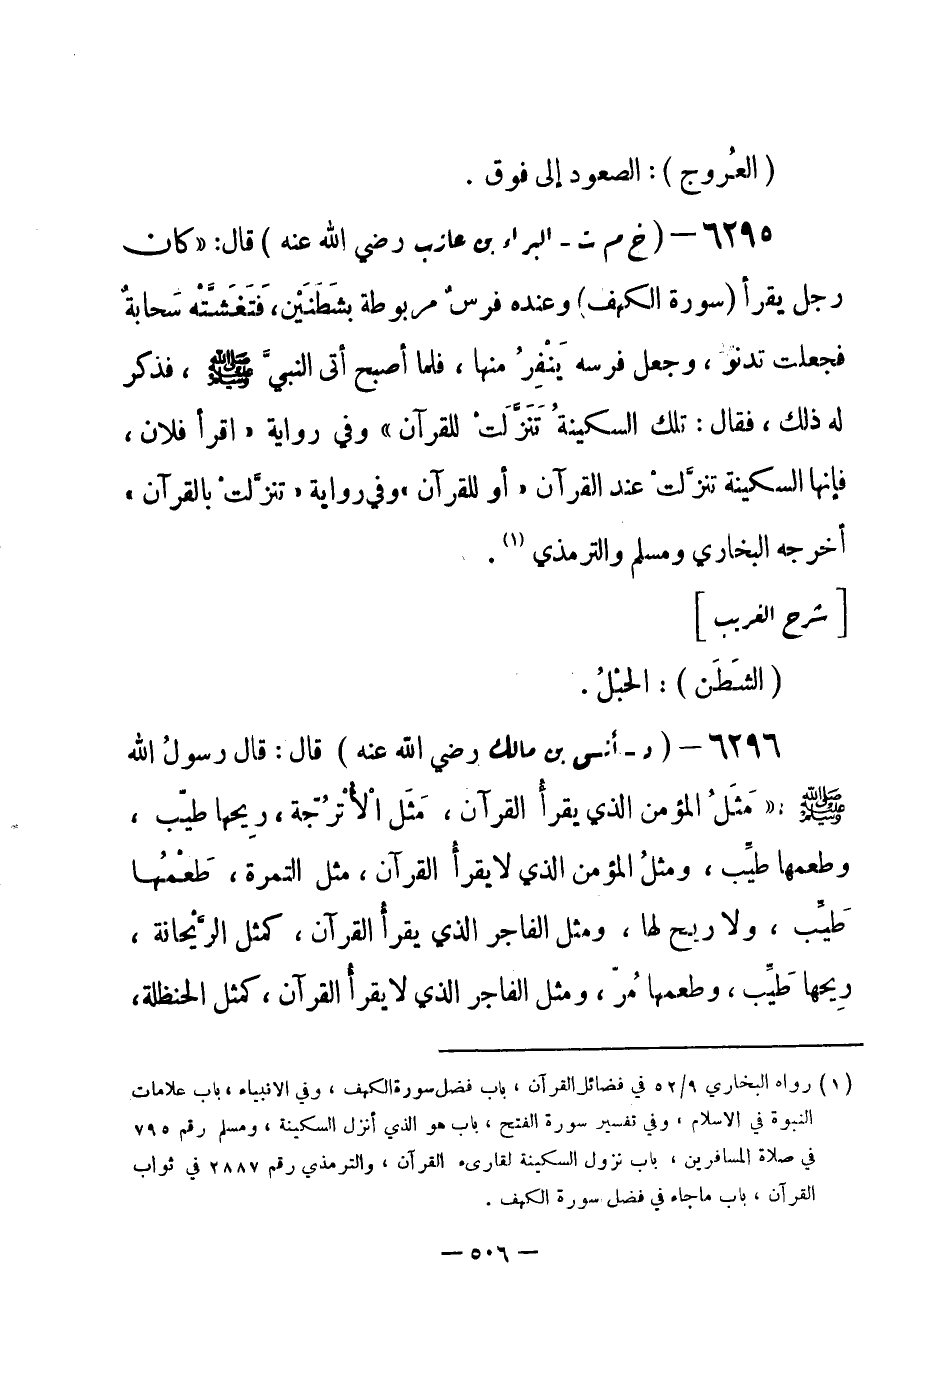 ( العُروج ) : الصعود إلى فوق .
٦٢٩٥ — ( خ م ت - البراء بن عازب رضي الله عنه ) قال : « كان
رجل يقرأ ( سورة الكهف ) وعنده فرسٌ مربوطة بشَطَنَيْن ، فَتَغَشَّتْه سَحابةٌ
فجعلت تدنو ، وجعل فرسه يَنْفِرُ منها ، فلما أصبح أتى النبيَّ ﷺ ، فذكر
له ذلك ، فقال : تلك السكينةُ تَنَزَّلَتْ للقرآن » وفي رواية « اقرأ فلان ،
فإنها السكينة تنزَّلتْ عند القرآن « أو للقرآن » وفي رواية « تنزَّلتْ بالقرآن »
أخرجه البخاري ومسلم والترمذي (١) .
[ شرح الغريب ]
( الشَطَن ) : الحبْلُ .
٦٢٩٦ — ( د - أنس بن مالك رضي الله عنه ) قال : قال رسولُ الله
ﷺ : « مَثَلُ المؤمن الذي يقرأُ القرآن ، مَثَل الْأُتْرُجّة ، ريحها طيّب ،
وطعمها طيِّب ، ومثلُ المؤمن الذي لا يقرأُ القرآن ، مثل التمرة ، طَعْمُها
طَيِّب ، ولا ريح لها ، ومثل الفاجر الذي يقرأُ القرآن ، كمثل الرَّيْحانة ،
رِيحها طَيِّب ، وطعمها مُرّ ، ومثل الفاجر الذي لا يقرأُ القرآن ، كمثل الحنظلة ،
(١) رواه البخاري ٥٢/٩ في فضائل القرآن ، باب فضل سورة الكهف ، وفي الانبياء ، باب علامات
النبوة في الاسلام ، وفي تفسير سورة الفتح ، باب هو الذي أنزل السكينة ، ومسلم رقم ٧٩٥
في صلاة المسافرين ، باب نزول السكينة لقارىء القرآن ، والترمذي رقم ٢٨٨٧ في ثواب
القرآن ، باب ماجاء في فضل سورة الكهف .
— ٥٠٦ —